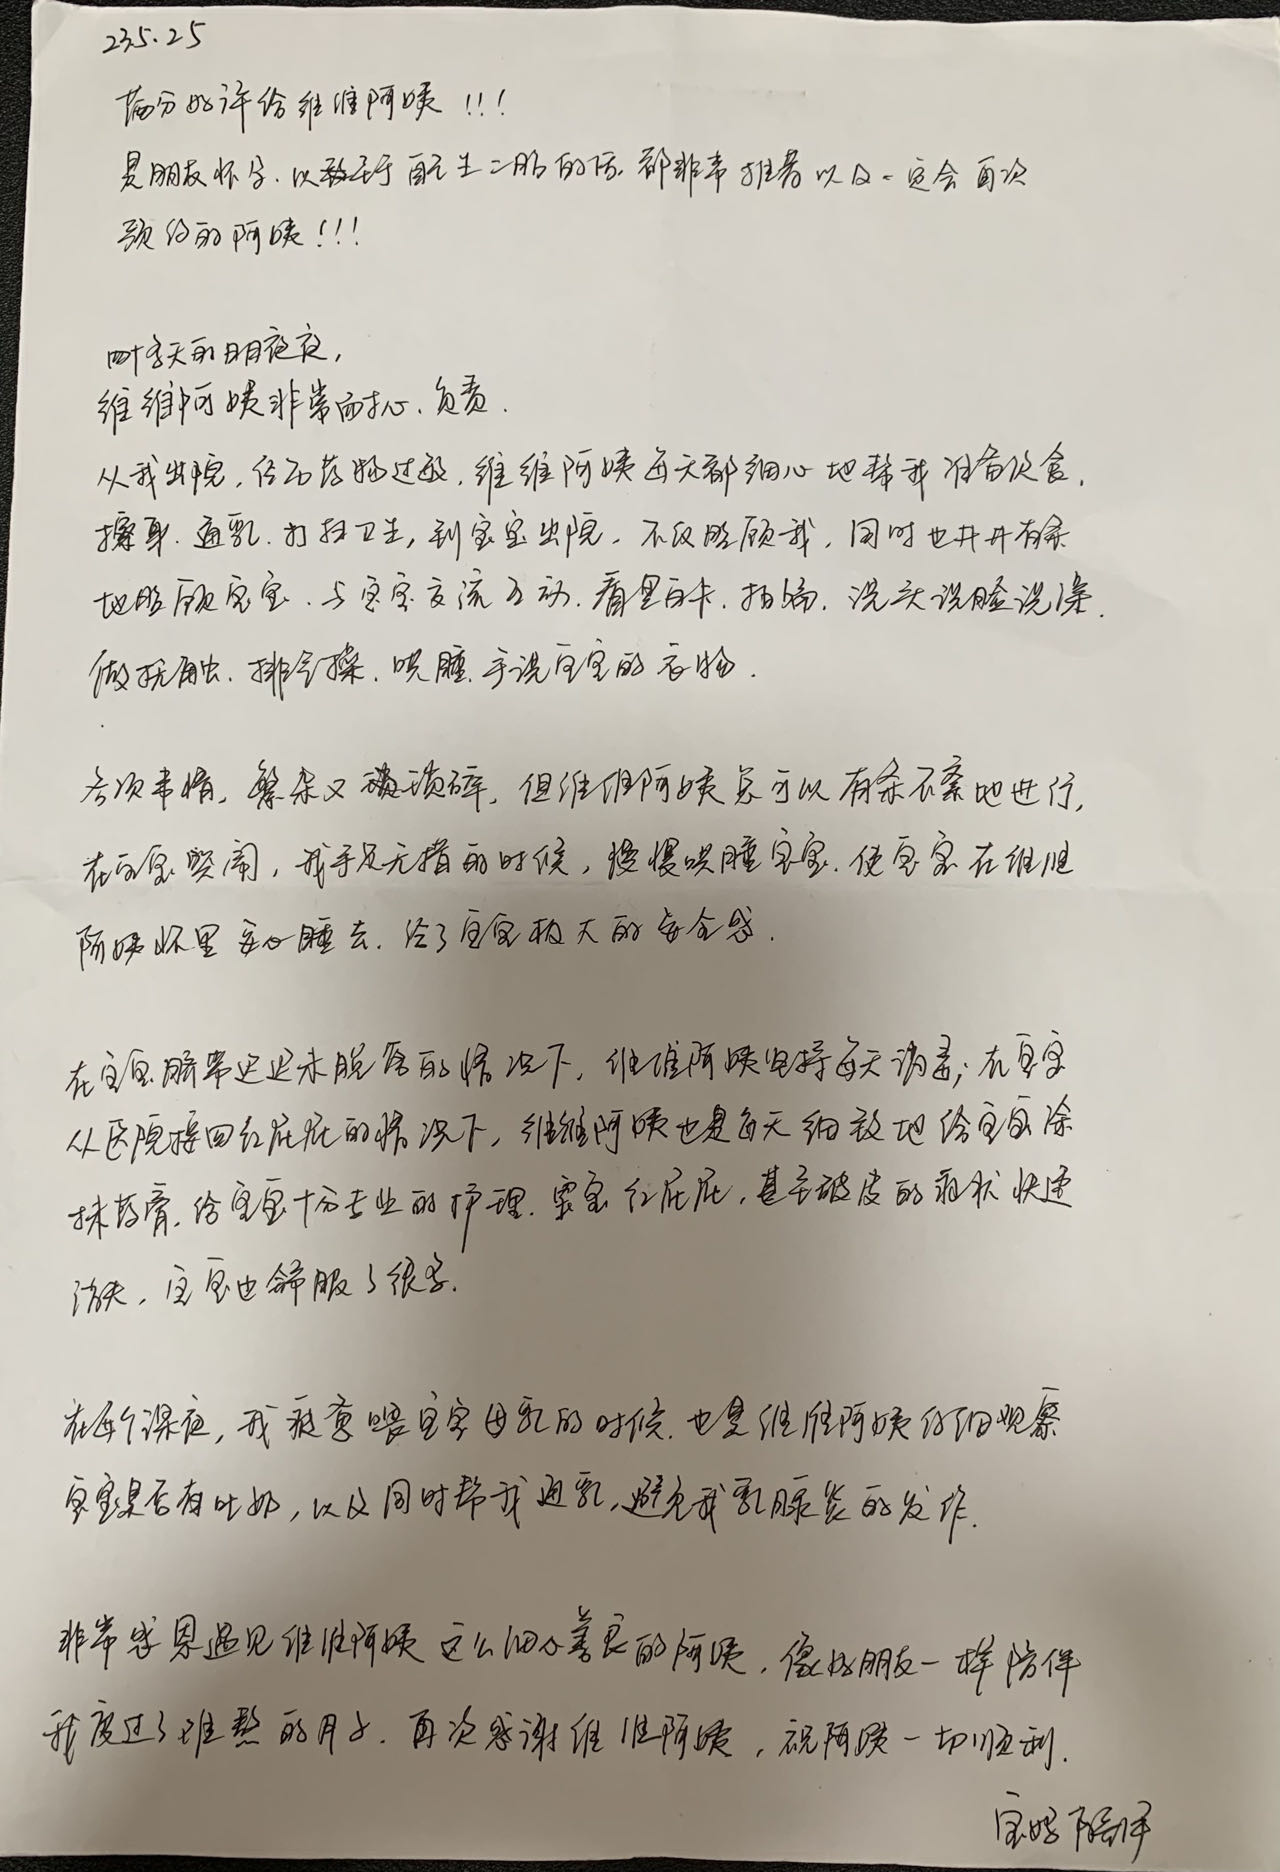 23.5.25
满分好评给维维阿姨!!!
是朋友怀孕、以至于自己生二胎的话、都非常推荐以及一定会再次
预约的阿姨!!!
四十多天的日日夜夜,
维维阿姨非常耐心、负责.
从我出院,经历药物过敏,维维阿姨每天都细心地帮我准备饮食、
擦身、通乳、打扫卫生,到宝宝出院、不仅照顾我,同时也井井有条
地照顾宝宝、与宝宝交流互动、看黑白卡、拍嗝、洗头洗脸洗澡、
做抚触、排气操、哄睡、手洗宝宝的衣物.
各项事情,繁杂又琐碎,但维维阿姨总可以有条不紊地进行,
在宝宝哭闹,我手足无措的时候,慢慢哄睡宝宝、使宝宝在维维
阿姨怀里安心睡去、给了宝宝极大的安全感.
在宝宝脐带迟迟未脱落的情况下,维维阿姨坚持每天消毒;在宝宝
从医院接回红屁屁的情况下,维维阿姨也是每天细致地给宝宝涂
抹药膏、给宝宝十分专业的护理、宝宝红屁屁,甚至破皮的症状快速
消失,宝宝也舒服了很多.
在每个深夜,我疲惫喂宝宝母乳的时候、也是维维阿姨仔细观察
宝宝是否有吐奶,以及同时帮我通乳,避免我乳腺炎的发作.
非常感恩遇见维维阿姨 这么细心善良的阿姨,像好朋友一样陪伴
我度过了难熬的月子、再次感谢维维阿姨,祝阿姨一切顺利.
宝妈